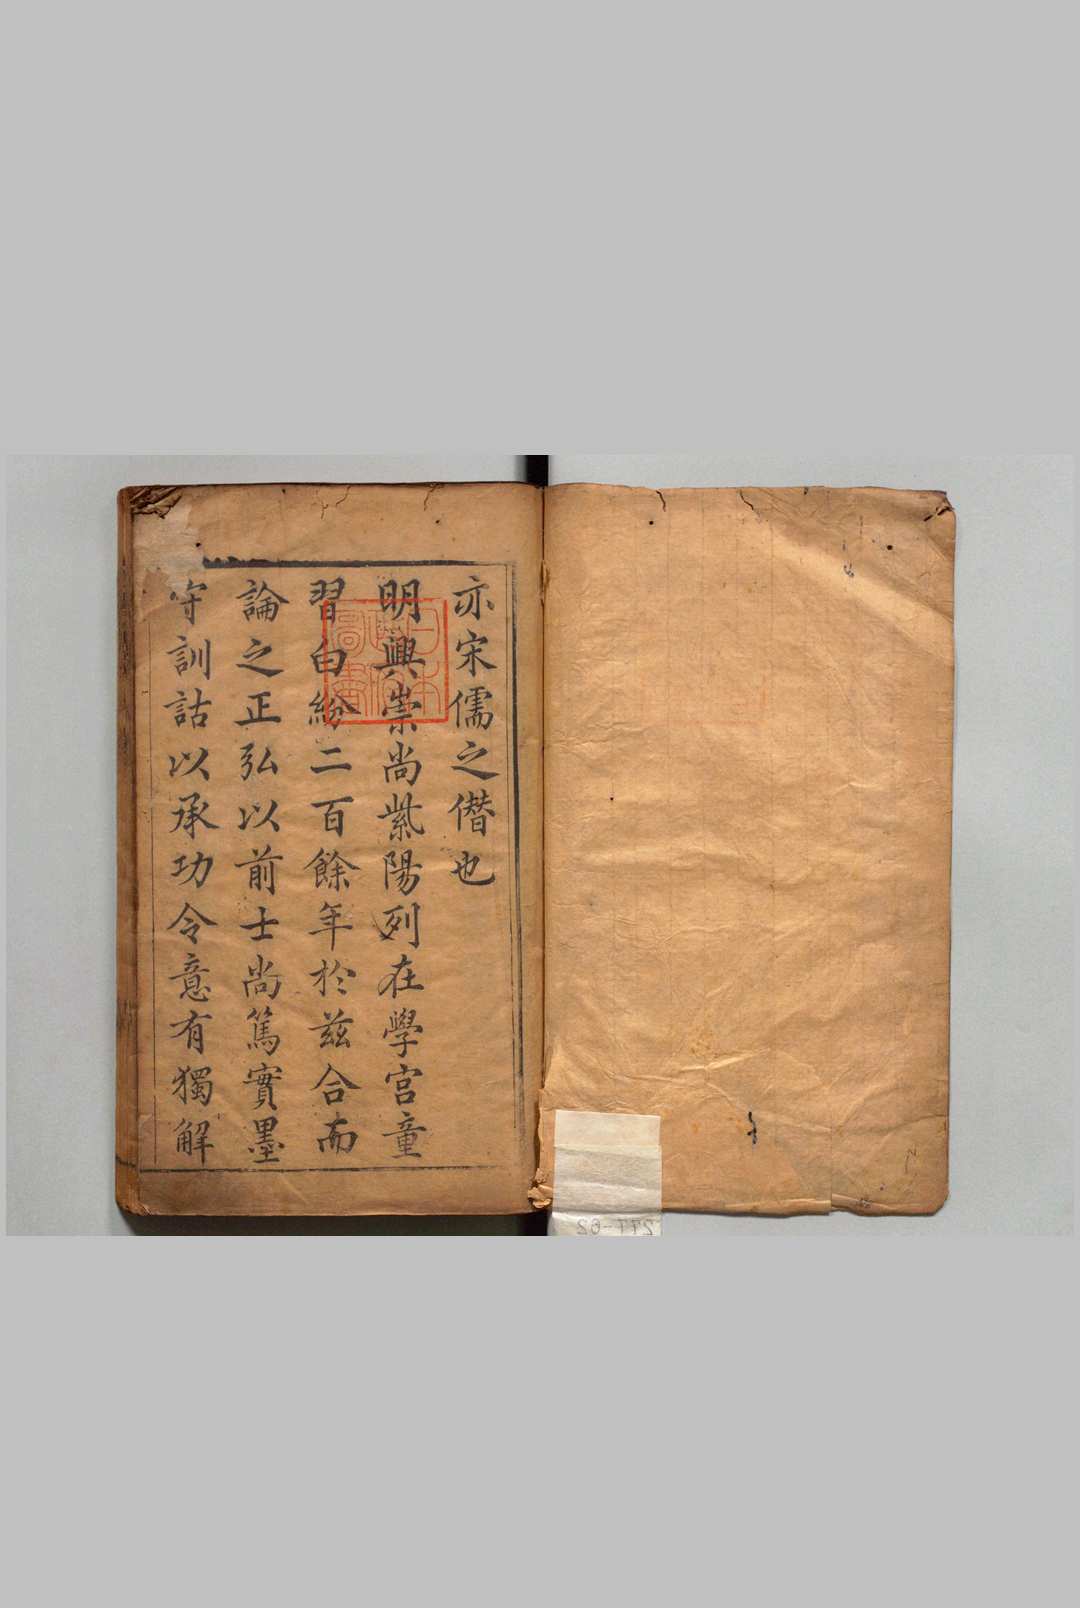 亦宋儒之僭也
明興崇尚紫陽列在學宮童
習白紛二百餘年於茲合而
論之正弘以前士尚篤實墨
守訓詁以承功令意有獨解
日本
政府
圖書
277-62